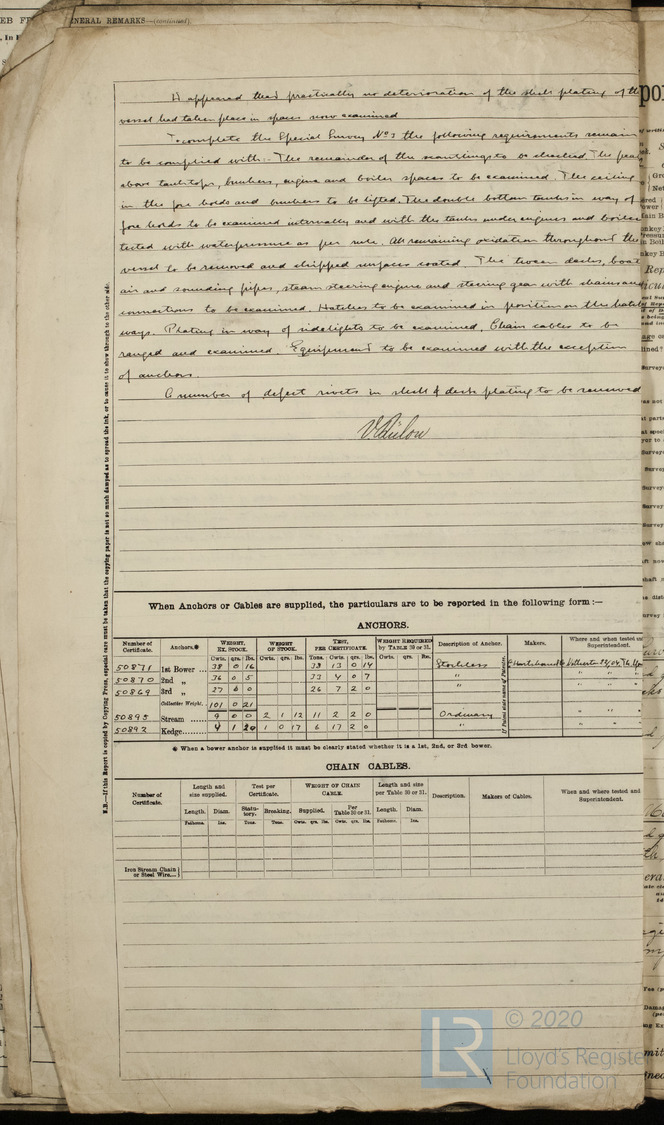 GENERAL REMARKS—(continued).
It appeared that practically no deterioration of the shell plating of the
vessel had taken place in spaces now examined
To complete the Special Survey No 3 the following requirements remain
to be complied with:- The remainder of the scantlings to be checked. The peaks
above tank tops, bunkers, engine and boiler spaces to be examined. The ceiling
in the fore holds and bunkers to be lifted. The double bottom tanks in way of
fore holds to be examined internally and with the tanks under engines and boilers
tested with waterpressure as per rule. All remaining oxidation throughout the
vessel to be removed and chipped surfaces coated. The tween decks, boat
air and sounding pipes, steam steering engine and steering gear with chains and
connections to be examined. Hatches to be examined in position on the hatch
ways. Plating in way of sidelights to be examined. Chain cables to be
ranged and examined. Equipment to be examined with the exception
of anchors.
A number of defect rivets in shell & deck plating to be renewed
N.B.—If this Report is copied by Copying Press, especial care must be taken that the copying paper is not so much damped as to spread the ink, or to cause it to show through to the other side.
When Anchors or Cables are supplied, the particulars are to be reported in the following form :—
ANCHORS.
Number of Certificate. Anchors.* WEIGHT, EX. STOCK. WEIGHT OF STOCK. TEST, PER CERTIFICATE. WEIGHT REQUIRED by TABLE 30 or 31. Description of Anchor. Makers. Where and when tested and Superintendent.
Cwts. qrs. lbs. Cwts. qrs. lbs. Tons. Cwts. qrs. lbs. Cwts. qrs. lbs.
50871 1st Bower ... 38 0 16 33 13 0 14 Stockless
50870 2nd „ 36 0 5 33 4 0 7 „
50869 3rd „ 27 0 0 26 7 2 0 „
Collective Weight. 101 0 21
50895 Stream ...... 9 0 0 2 1 12 11 2 2 0 Ordinary
50892 Kedge...... 4 1 20 1 0 17 6 17 2 0 „
* When a bower anchor is supplied it must be clearly stated whether it is a 1st, 2nd, or 3rd bower.
CHAIN CABLES.
Number of Certificate. Length and size supplied. Test per Certificate. WEIGHT OF CHAIN CABLE. Length and size per Table 30 or 31. Description. Makers of Cables. When and where tested and Superintendent.
Length. Diam. Statutory. Breaking. Supplied. Per Table 30 or 31. Length. Diam.
Fathoms. Ins. Tons. Tons. Cwts. qrs. lbs. Cwts. qrs. lbs. Fathoms. Ins.
Iron Stream Chain or Steel Wire...
LR © 2020
Lloyd's Register
Foundation